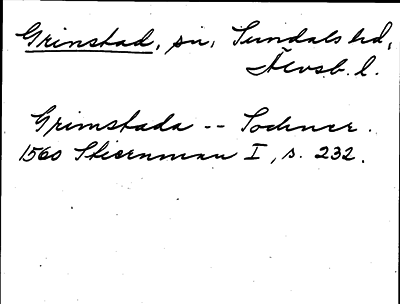 Grinstad, sn, Sundals hd,
Älvsb. l.
Grimstada -- Sochner.
1560 Stiernman I, s. 232.